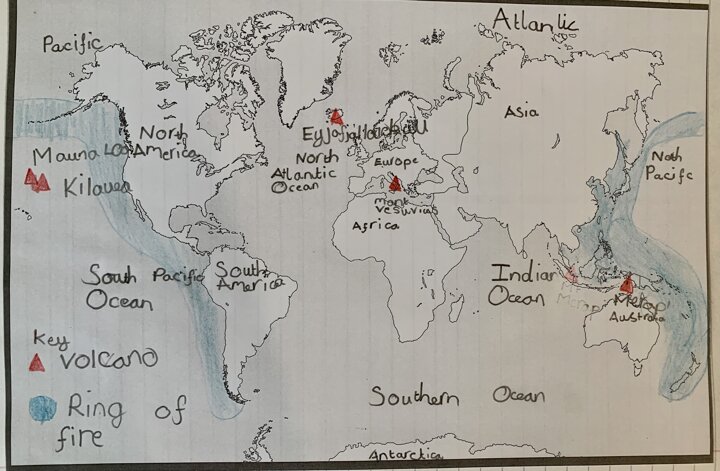 Atlantic
Pacific
Asia
North
America
Mauna Loa
Kilauea
Eyjafjallajokull
North
Atlantic
Ocean
Europe
Mont
Vesuvius
Africa
Noth
Pacifc
South Pacific
Ocean
South
America
Indian
Ocean
Merapi
Australia
Key
volcano
Ring of
fire
Southern Ocean
Antarctica